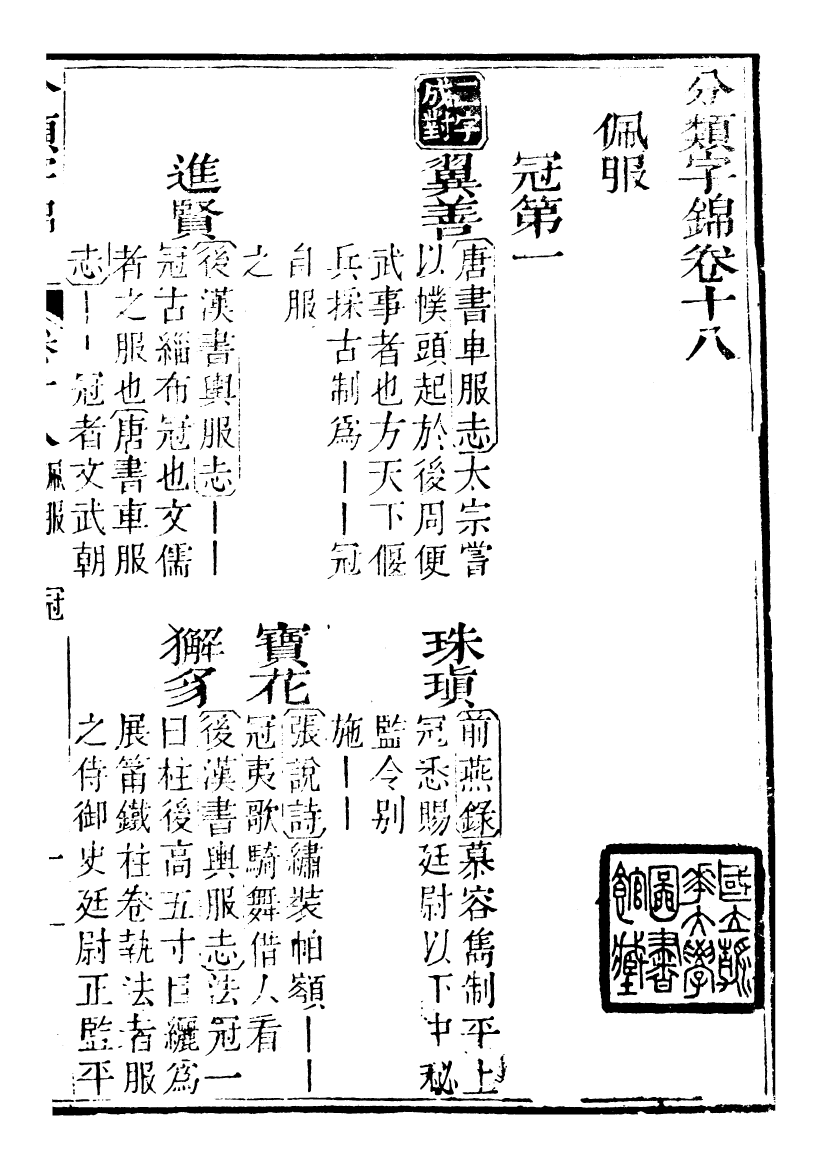 分類字錦卷十八
佩服
冠第一
二字成對
翼善
唐書車服志太宗嘗
以幞頭起於後周便
武事者也方天下偃
兵採古制爲丨丨冠
自服
之
珠瑱
前燕錄慕容雋制平上
冠悉賜廷尉以下中秘
監令别
施丨丨
寶花
張說詩繡裝帕額丨丨
冠夷歌騎舞借人看
進賢
後漢書輿服志丨丨
冠古緇布冠也文儒
者之服也唐書車服
志丨丨冠者文武朝
獬豸
後漢書輿服志法冠一
曰柱後高五寸目纚爲
展筩鐵柱卷執法者服
之侍御史廷尉正監平
分類字錦
卷十八
佩服
冠
一
國立清華大學圖書館藏